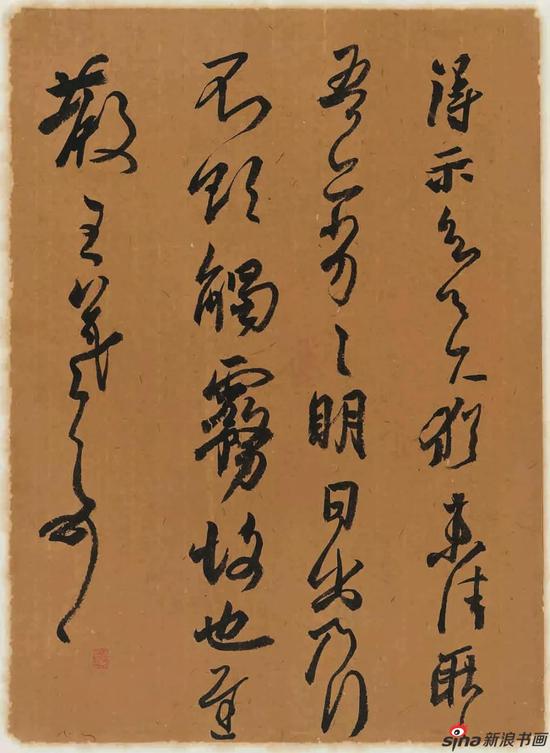 得示知足下猶未佳耿々
吾亦劣々明日出乃行
不欲觸霧故也遲
散王羲之頓首
sina新浪书画